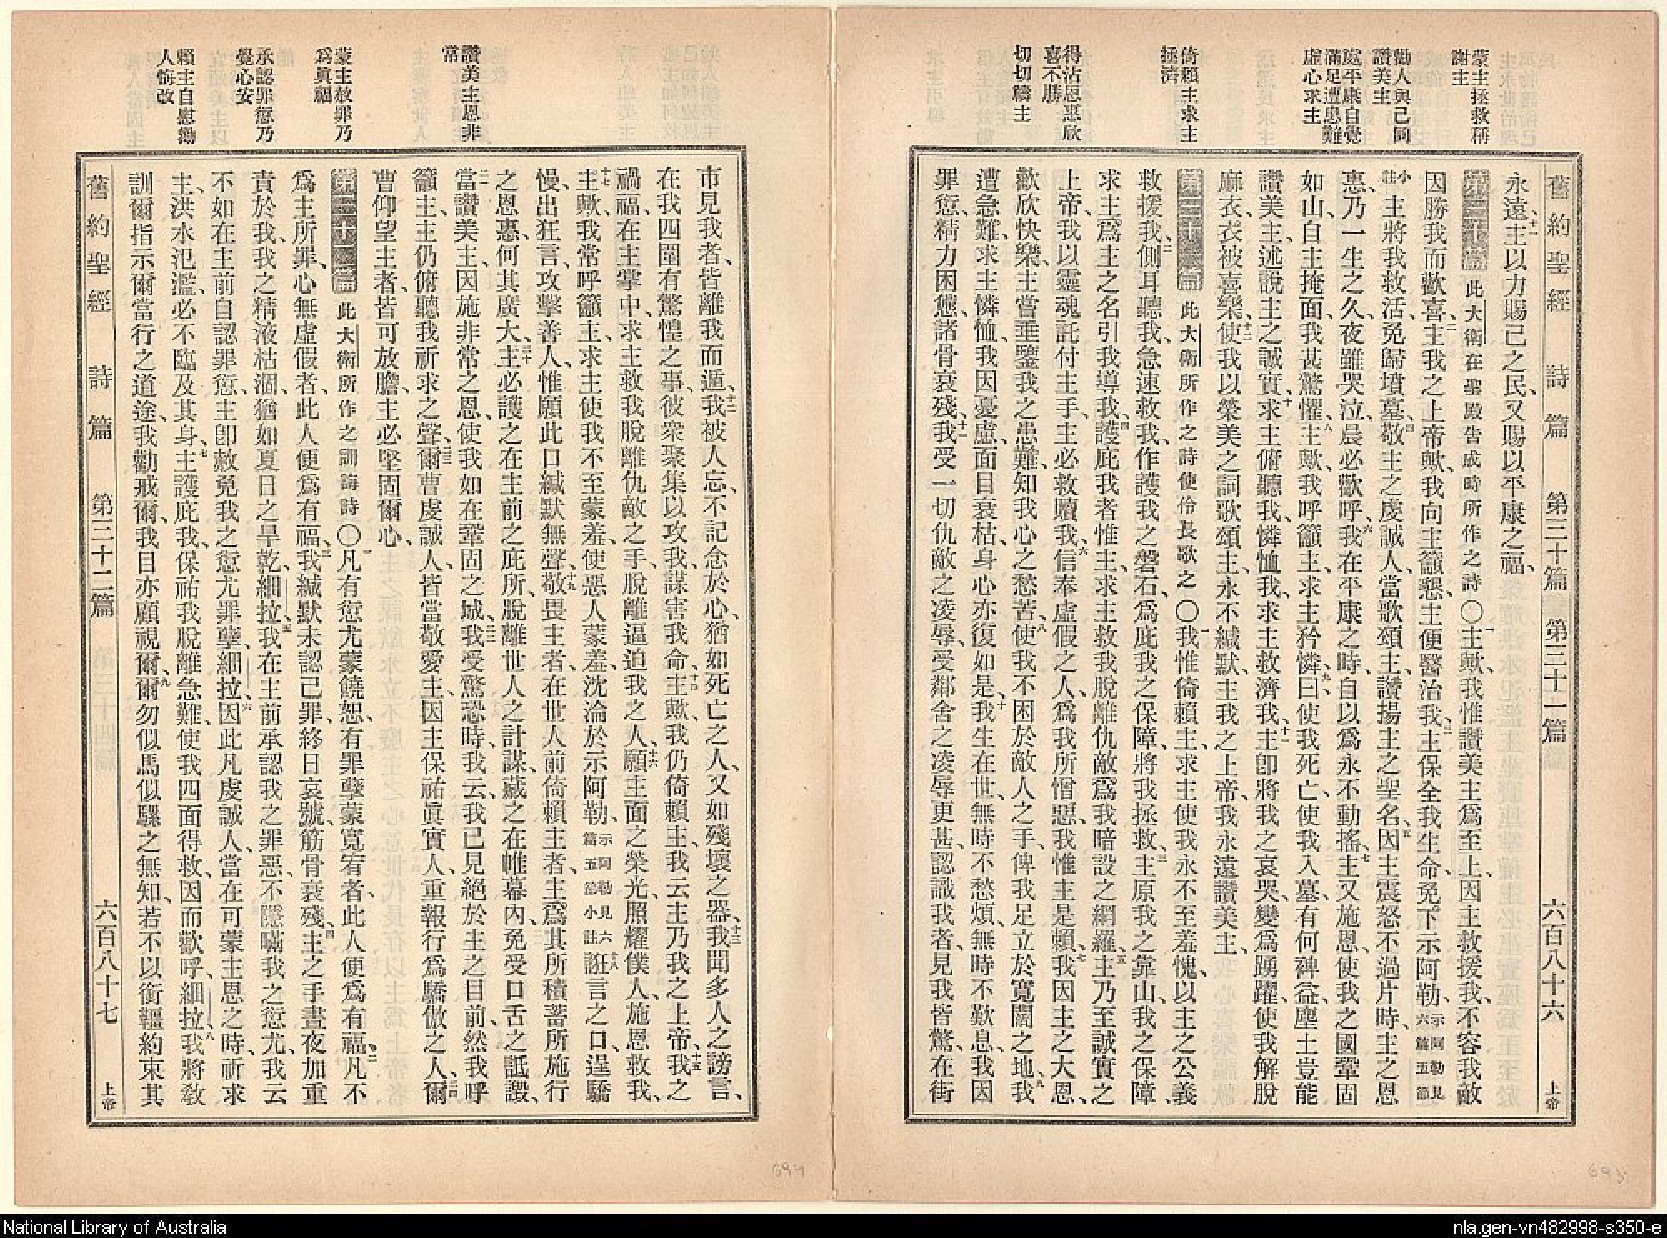 蒙主拯救稱
謝主
勸人與己同
讚美主
處平康自覺
滿足遭患難
虛心求主
倚賴主求主
拯濟
得沾恩惠欣
喜不勝
切切禱主
舊約聖經 詩篇 第三十篇 第三十一篇 六百八十六 上帝
永遠、十一主以力賜己之民、又賜以平康之福、
第三十篇 此大衛在聖殿告成時所作之詩〇一主歟、我惟讚美主爲至上、因主救援我、不容我敵
因勝我而歡喜、二主我之上帝歟、我向主籲懇、主便醫治我、三主保全我生命、免下示阿勒、示阿勒見六篇五節
小註主將我救活、免歸墳墓、四敬主之虔誠人、當歌頌主、讚揚主之聖名、五因主震怒不過片時、主之恩
惠、乃一生之久、夜雖哭泣、晨必歡呼、六我在平康之時、自以爲永不動搖、七主又施恩、使我之國鞏固
如山、自主掩面、我甚驚懼、八主歟、我呼籲主、求主矜憐曰、九使我死亡、使我入墓、有何裨益、塵土豈能
讚美主、述說主之誠實、十求主俯聽我、憐恤我、求主救濟我、十一主卽將我之哀哭、變爲踴躍、使我解脫
麻衣、衣被喜樂、十二使我以榮美之詞、歌頌主、永不緘默、主我之上帝、我永遠讚美主、
第三十一篇 此大衛所作之詩使伶長歌之〇一我惟倚賴主、求主使我永不至羞愧、以主之公義
救援我、二側耳聽我、急速救我、作護我之磐石、爲庇我之保障、將我拯救、三主原我之靠山、我之保障、
求主爲主之名、引我導我、四護庇我者惟主、求主救我脫離仇敵爲我暗設之網羅、五主乃至誠實之
上帝、我以靈魂託付主手、主必救贖我、六信奉虛假之人、爲我所憎惡、我惟主是賴、七我因主之大恩、
歡欣快樂、主嘗垂鑒我之患難、知我心之愁苦、八使我不困於敵人之手、俾我足立於寬闊之地、九我
遭急難、求主憐恤、我因憂慮、面目衰枯、身心亦復如是、十我生在世、無時不愁煩、無時不歎息、我因
罪愆、精力困憊、諸骨衰殘、十一我受一切仇敵之凌辱、受鄰舍之凌辱更甚、認識我者、見我皆驚、在街
讚美主恩非
常
蒙主赦罪乃
爲眞福
承認罪愆乃
覺心安
賴主自慰勸
人悔改
市見我者、皆離我而遁、十二我被人忘、不記念於心、猶如死亡之人、又如殘壞之器、十三我聞多人之謗言、
在我四圍有驚惶之事、彼衆聚集以攻我、謀害我命、十四主歟、我仍倚賴主、我云、主乃我之上帝、十五我之
禍福、在主掌中、求主救我脫離仇敵之手、脫離逼迫我之人、十六願主面之榮光、照耀僕人、施恩救我、
十七主歟、我常呼籲主、求主使我不至蒙羞、使惡人蒙羞、沈淪於示阿勒、示阿勒見六篇五節小註十八誑言之口、逞驕
慢、出狂言、攻擊善人、惟願此口緘默無聲、十九敬畏主者、在世人前倚賴主者、主爲其所積蓄所施行
之恩惠、何其廣大、二十主必護之在主前之庇所、脫離世人之計謀、藏之在帷幕內、免受口舌之詆譭、
二一當讚美主、因施非常之恩、使我如在鞏固之城、二二我受驚恐時、我云、我已見絕於主之目前、然我呼
籲主、主仍俯聽我祈求之聲、二三爾曹虔誠人、皆當敬愛主、因主保祐眞實人、重報行爲驕傲之人、二四爾
曹仰望主者、皆可放膽、主必堅固爾心、
第三十二篇 此大衛所作之訓誨詩〇一凡有愆尤蒙饒恕、有罪孽蒙寬宥者、此人便爲有福、二凡不
爲主所罪、心無虛假者、此人便爲有福、三我緘默未認己罪、終日哀號、筋骨衰殘、四主之手晝夜加重
責於我、我之精液枯涸、猶如夏日之旱乾、細拉、五我在主前承認我之罪惡、不隱瞞我之愆尤、我云、
不如在主前自認罪愆、主卽赦免我之愆尤罪孽、細拉、六因此凡虔誠人、當在可蒙主恩之時、祈求
主、洪水氾濫、必不臨及其身、七主護庇我、保祐我脫離急難、使我四面得救、因而歡呼、細拉、八我將敎
訓爾、指示爾當行之道途、我勸戒爾、我目亦顧視爾、九爾勿似馬似騾之無知、若不以銜韁約束其
舊約聖經 詩篇 第三十二篇 六百八十七 上帝
National Library of Australia
nla.gen-vn482998-s350-e